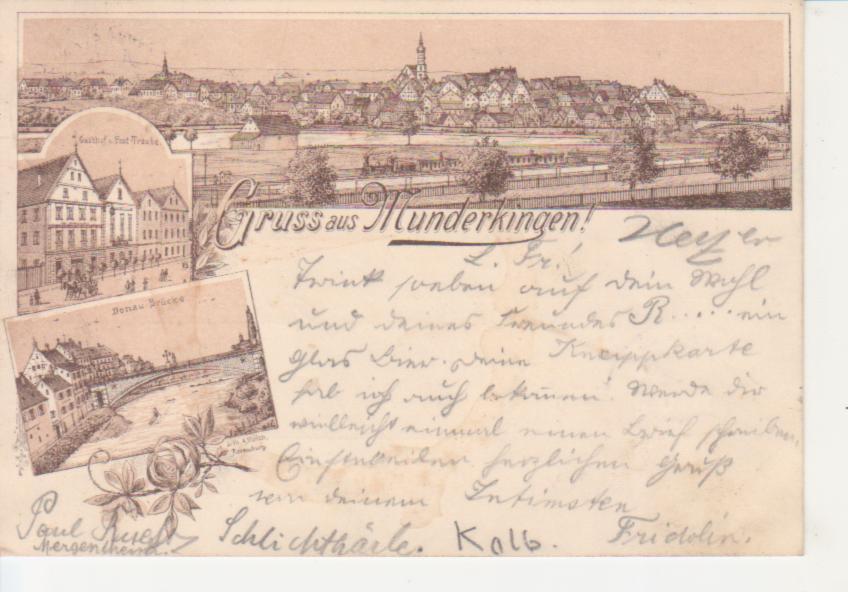 Gasthof z. Post-Traube.
Gruss aus Munderkingen!
Donau Brücke
L. Fr.!
Trink soeben auf dein Wohl
und deines Freundes R..... ein
Glas Bier. Deine Kneippkarte
hab ich auch bekommen. Werde dir
vielleicht einmal einen Brief schreiben.
Einstweilen herzlichen Gruß
von deinem Intimsten
Fridolin.
Paul
Mergentheim.
Schlichthärle.
Kolb.
Ravensburg